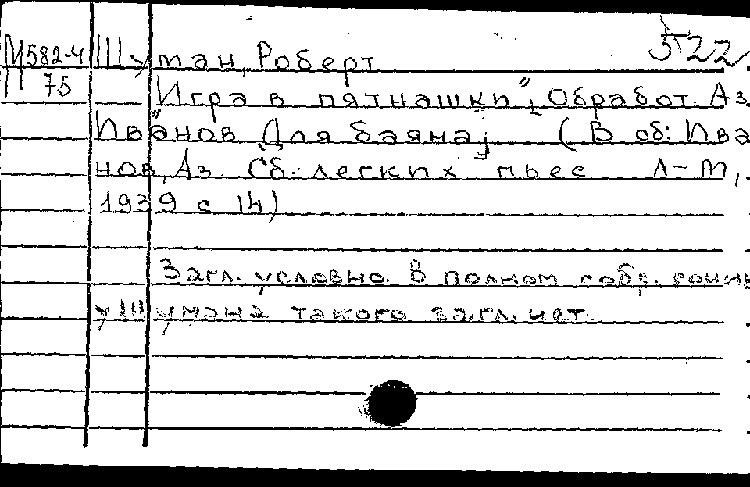 М582-4 Шуман, Роберт 522
П 75 "Игра в пятнашки", Обработ. Аз.
Иванов. [Для баяна] (В сб: Ива
нов, Аз. Сб. легких пьес Л-М,
1939 с 14)
Загл. условно. В полном собр. сочин
у Шумана такого загл. нет.